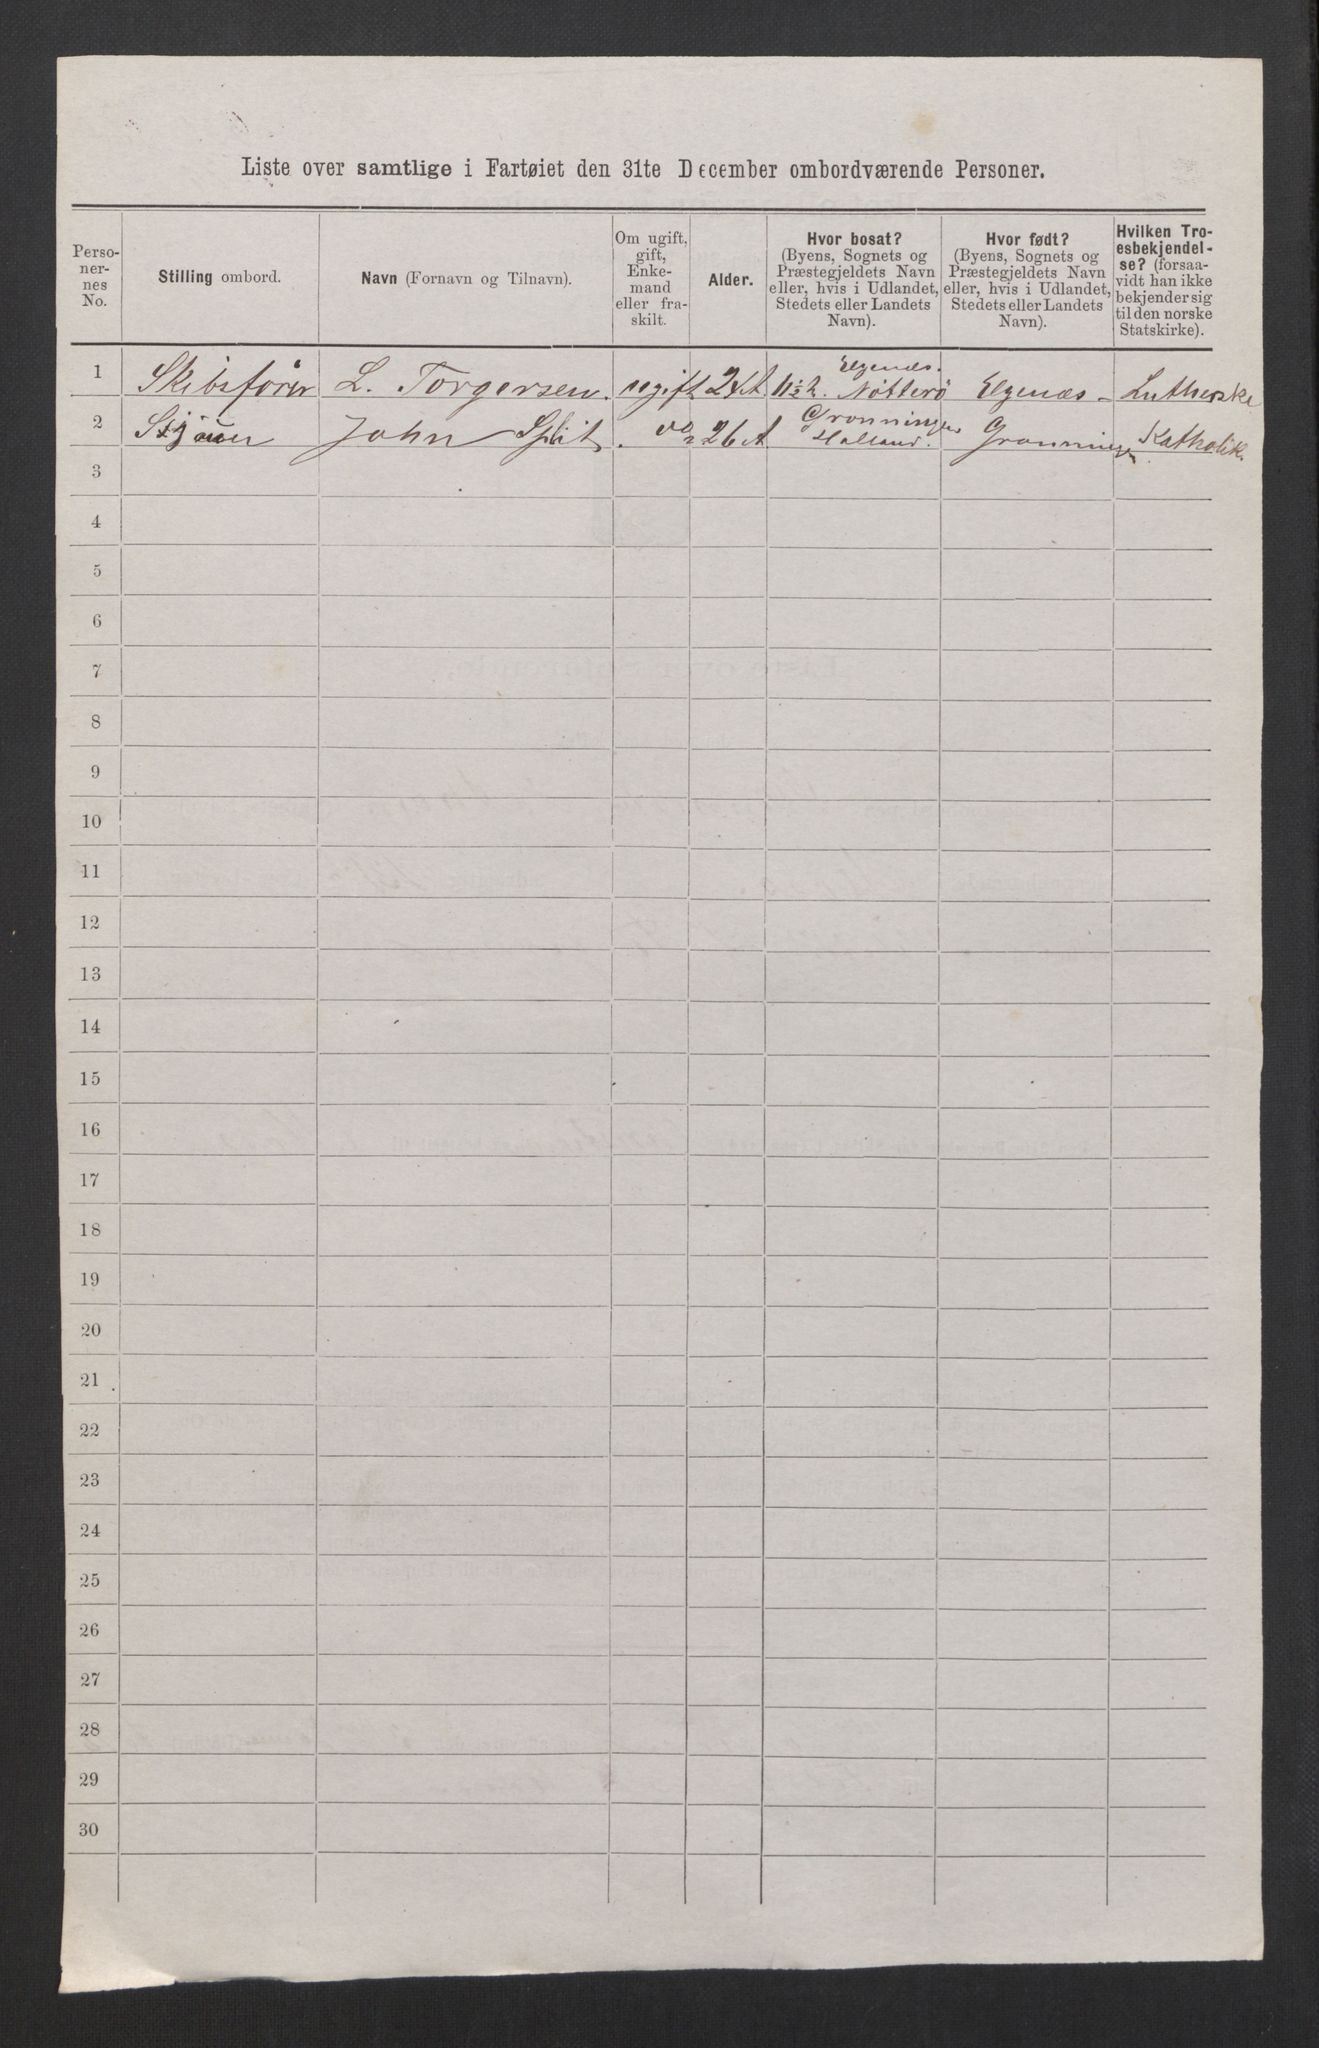 Liste over samtlige i Fartøiet den 31te December ombordværende Personer.
Perso-
ner-
nes
No.
Stilling ombord.
Navn (Fornavn og Tilnavn).
Om ugift,
gift,
Enke-
mand
eller fra-
skilt.
Alder.
Hvor bosat?
(Byens, Sognets og
Præstegjeldets Navn
eller, hvis i Udlandet,
Stedets eller Landets
Navn).
Hvor født?
(Byens, Sognets og
Præstegjeldets Navn
eller, hvis i Udlandet,
Stedets eller Landets
Navn).
Hvilken Tro-
esbekjendel-
se? (forsaa-
vidt han ikke
bekjender sig
til den norske
Statskirke).
Elgenæs.
1 Skibsfører L. Torgersen. ugift Nötterö Elgenæs - Lutherske
2 John do 26 A Gronningen Holland. Gronningen Katholik.
3
4
5
6
7
8
9
10
11
12
13
14
15
16
17
18
19
20
21
22
23
24
25
26
27
28
29
30